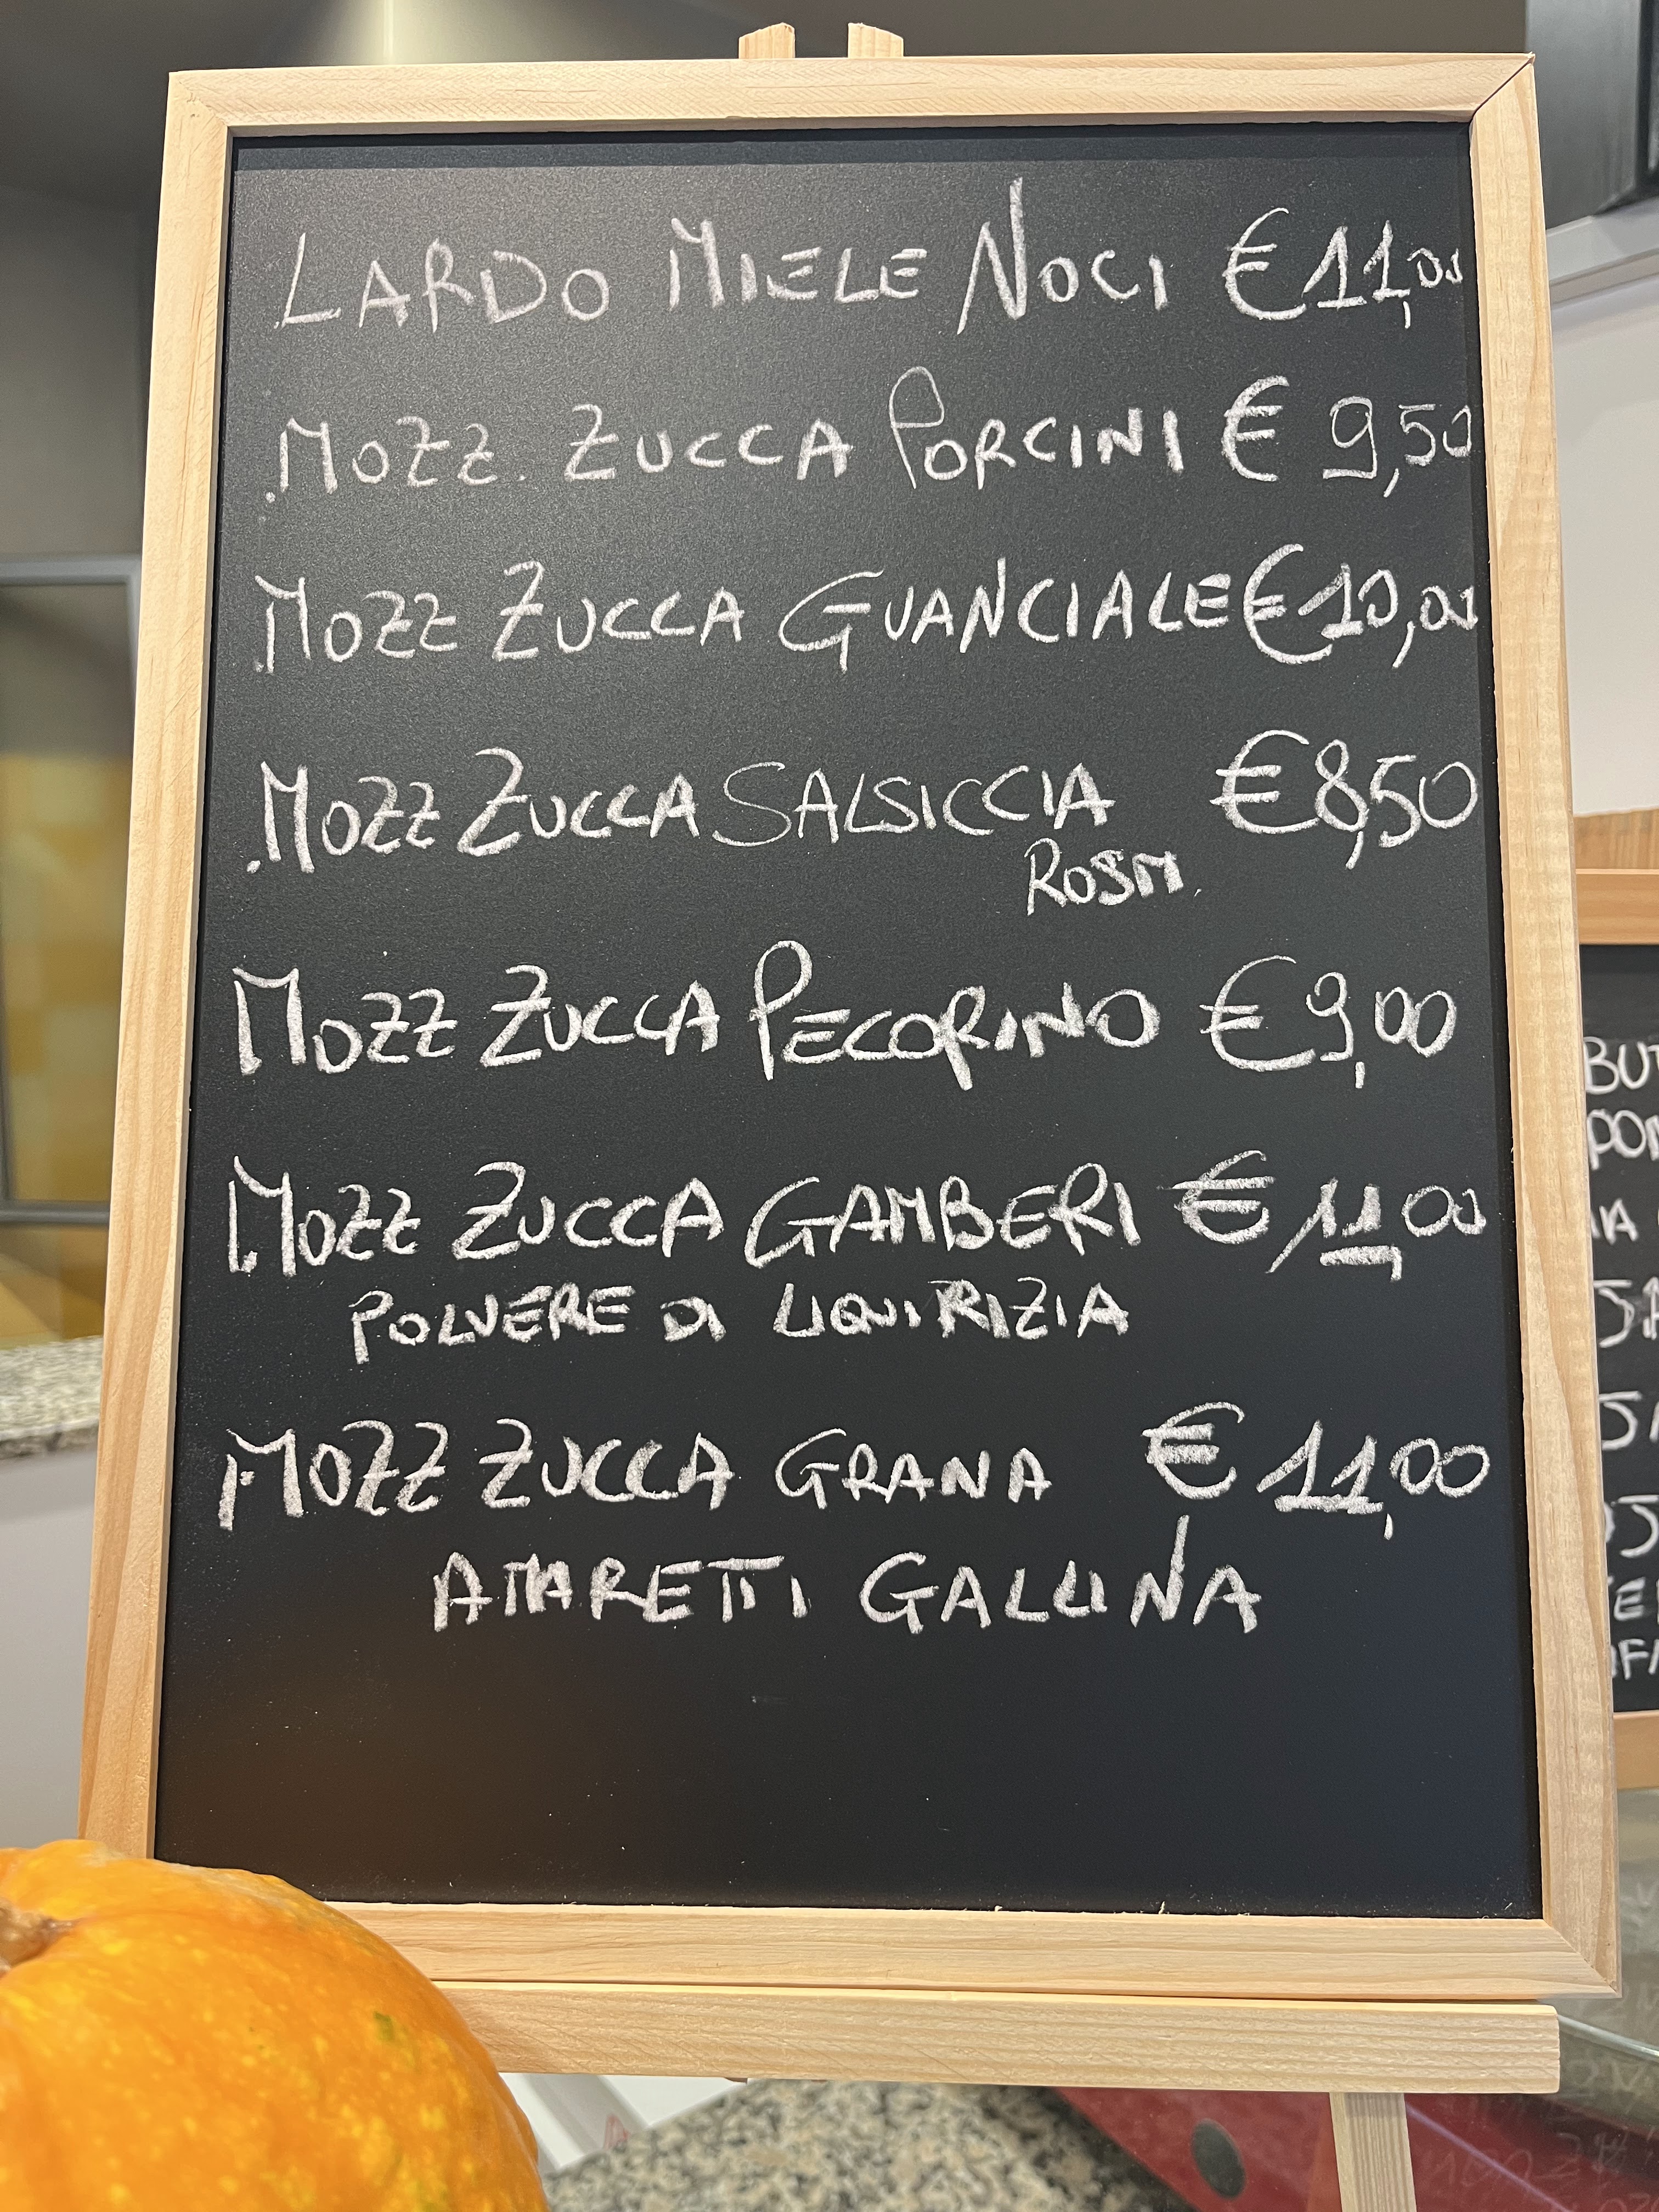 LARDO MIELE NOCI € 11,00
MOZZ. ZUCCA PORCINI € 9,50
MOZZ ZUCCA GUANCIALE € 10,00
MOZZ ZUCCA SALSICCIA € 8,50
ROSM.
MOZZ ZUCCA PECORINO € 9,00
MOZZ ZUCCA GAMBERI € 11,00
POLVERE DI LIQUIRIZIA
MOZZ ZUCCA GRANA € 11,00
AMARETTI GALLINA